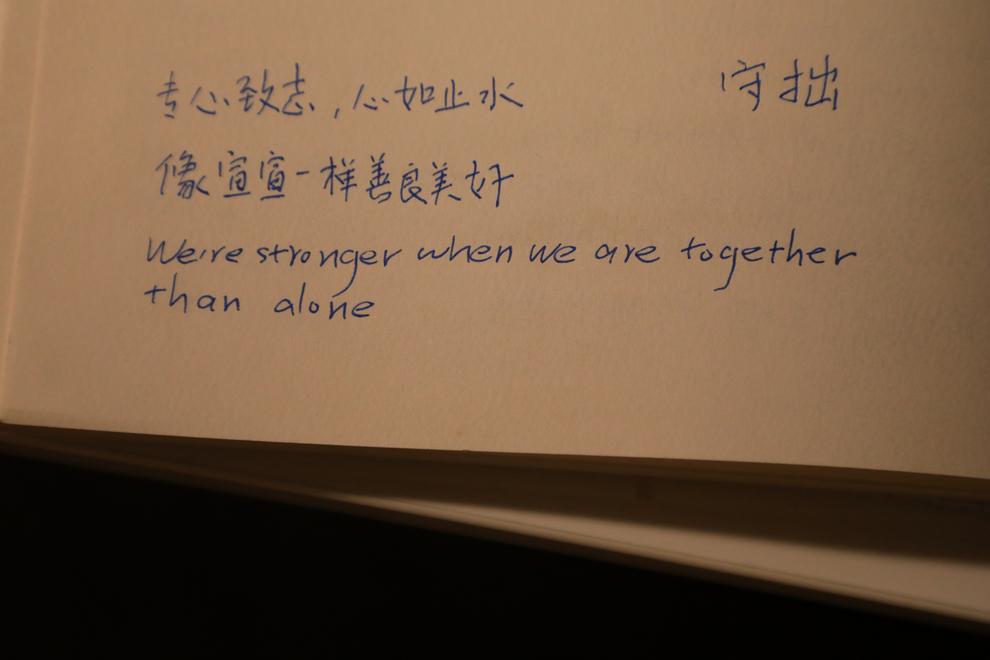 专心致志,心如止水 守拙
像宣宣一样善良美好
We're stronger when we are together
than alone